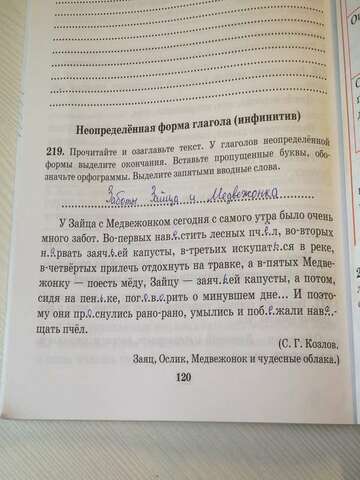 Неопределённая форма глагола (инфинитив)
219. Прочитайте и озаглавьте текст. У глаголов неопределённой
формы выделите окончания. Вставьте пропущенные буквы, обо-
значьте орфограммы. Выделите запятыми вводные слова.
Заботы Зайца и Медвежонка
У Зайца с Медвежонком сегодня с самого утра было очень
много забот. Во-первых навестить лесных пчёл, во-вторых
нарвать заячьей капусты, в-третьих искупаться в реке,
в-четвёртых прилечь отдохнуть на травке, а в-пятых Медве-
жонку — поесть мёду, Зайцу — заячьей капусты, а потом,
сидя на пеньке, поговорить о минувшем дне... И поэто-
му они проснулись рано-рано, умылись и побежали наве-
щать пчёл.
(С. Г. Козлов.
Заяц, Ослик, Медвежонок и чудесные облака.)
120